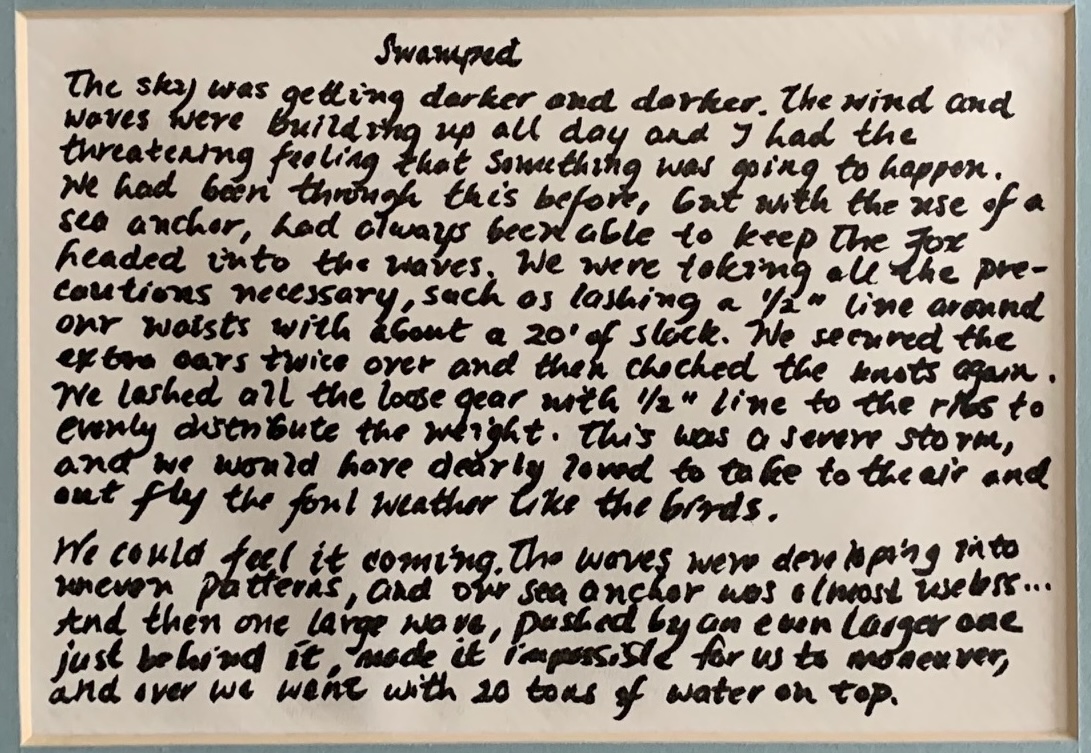 Swamped
The sky was getting darker and darker. The wind and
waves were building up all day and I had the
threatening feeling that something was going to happen.
We had been through this before, but with the use of a
sea anchor, had always been able to keep The Fox
headed into the waves. We were taking all the pre-
cautions necessary, such as lashing a 1/2" line around
our waists with about a 20' of slack. We secured the
extra oars twice over and then checked the knots again.
We lashed all the loose gear with 1/2" line to the ribs to
evenly distribute the weight. This was a severe storm,
and we would have dearly loved to take to the air and
out fly the foul weather like the birds.
We could feel it coming. The waves were developing into
uneven patterns, and our sea anchor was almost useless...
And then one large wave, pushed by an even larger one
just behind it, made it impossible for us to maneuver,
and over we went with 20 tons of water on top.